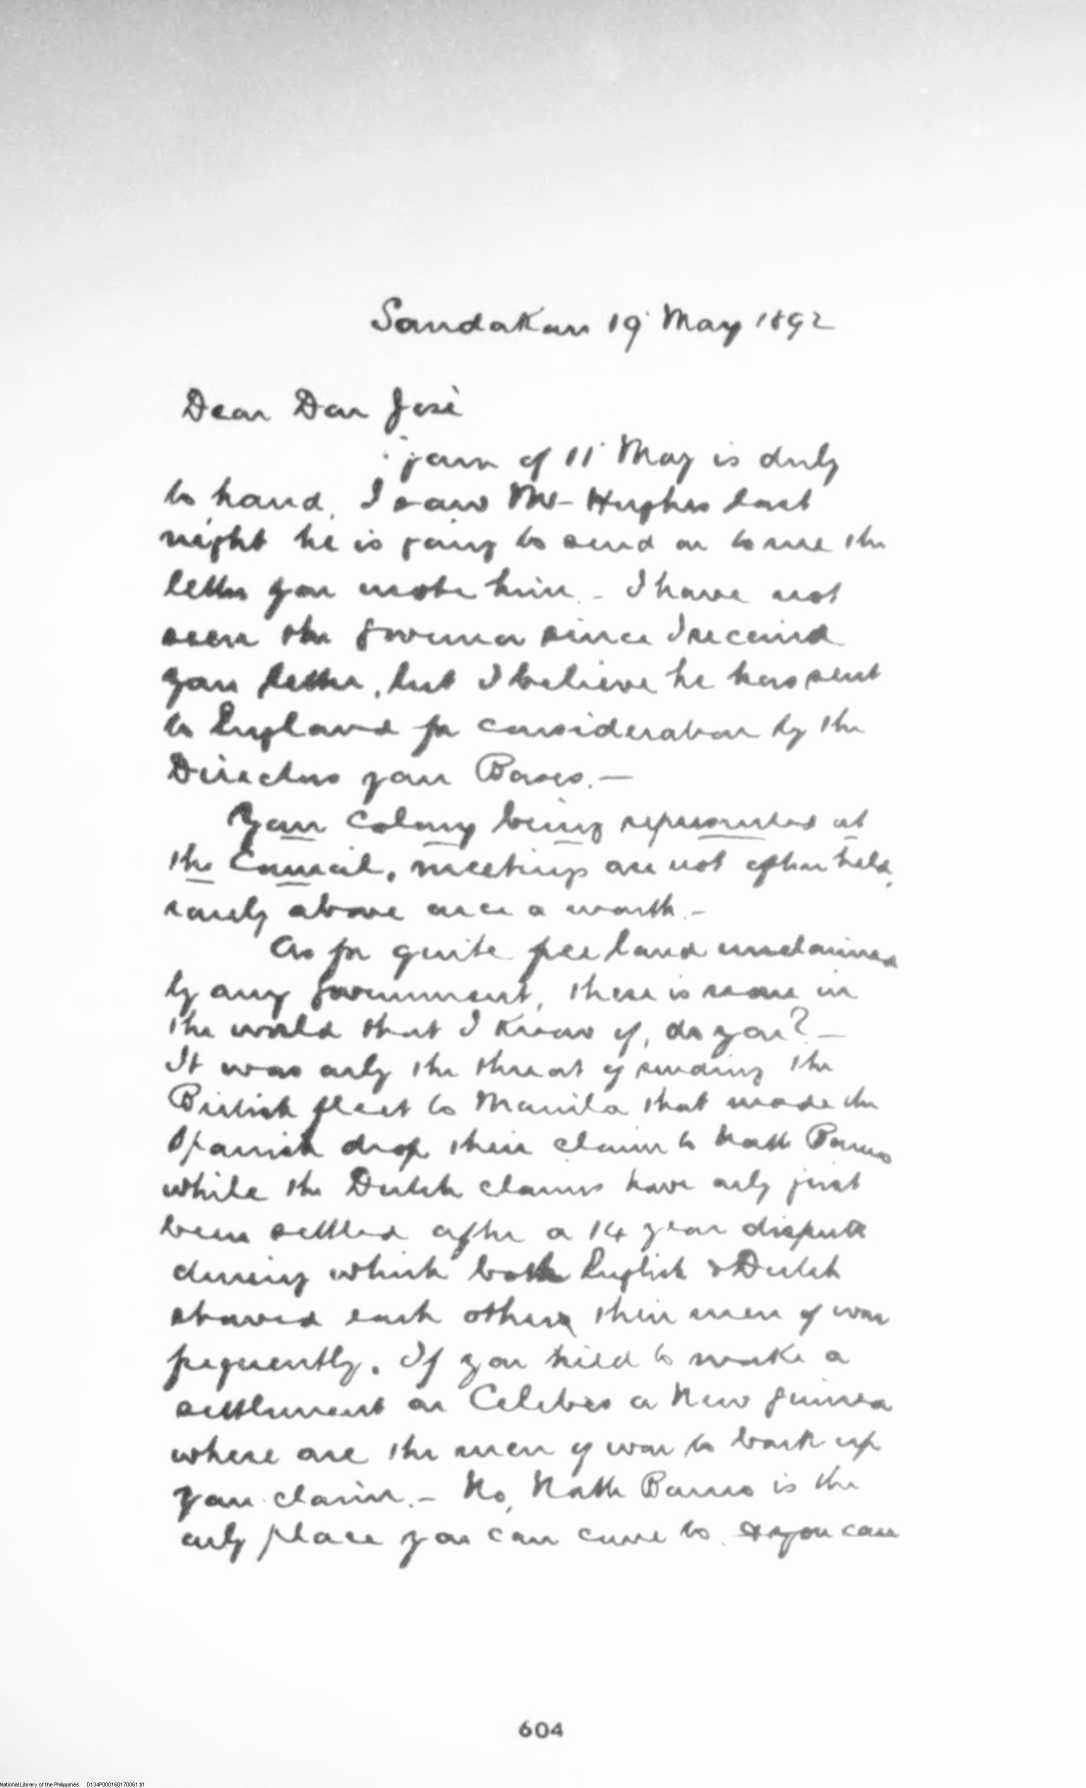 Sandakan 19 May 1892
Dear Don José
yours of 11 May is duly
to hand, I saw Mr Hughes last
night he is going to send on to me the
letter you wrote him. - I have not
seen the Governor since I received
your letter, but I believe he has sent
to England for consideration by the
Directors your Bases. —
Your Colony being represented at
the Council, meetings are not often held,
rarely above once a month. -
As for quite free land unclaimed
by any Government, there is none in
the world that I know of, do you? —
It was only the threat of sending the
British fleet to Manila that made the
Spanish drop their claim to North Borneo
while the Dutch claims have only just
been settled after a 14 year dispute
during which both English & Dutch
showed each others their men of war
frequently. If you tried to make a
settlement on Celebes or New Guinea
where are the men of war to back up
your claim. - No, North Borneo is the
only place you can come to. & you can
604
National Library of the Philippines